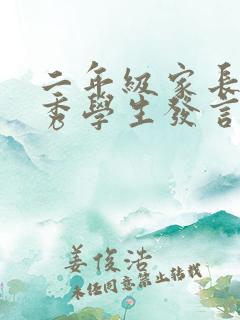 二年級家長
秀學生發言
姜俊浩
未經同意禁止轉載